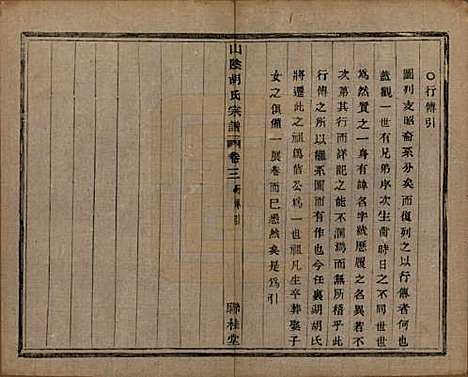 ○行傳引
圖列支昭裔系分矣而復列之以行傳者何也
蓋觀一世有兄弟序次生齒時日之不同世世
為然質之一身有諱名字號歷履之名異若不
第其行而詳記之能不溷為而無所稽乎此
行傳之所以繼系圖而有也今任裏湖胡氏
將遷此之祖為信公為一世祖凡生卒葬娶子
女之俱備一展卷而已悉然矣是為引
山陰胡氏宗譜 卷三 行傳引
聯桂堂